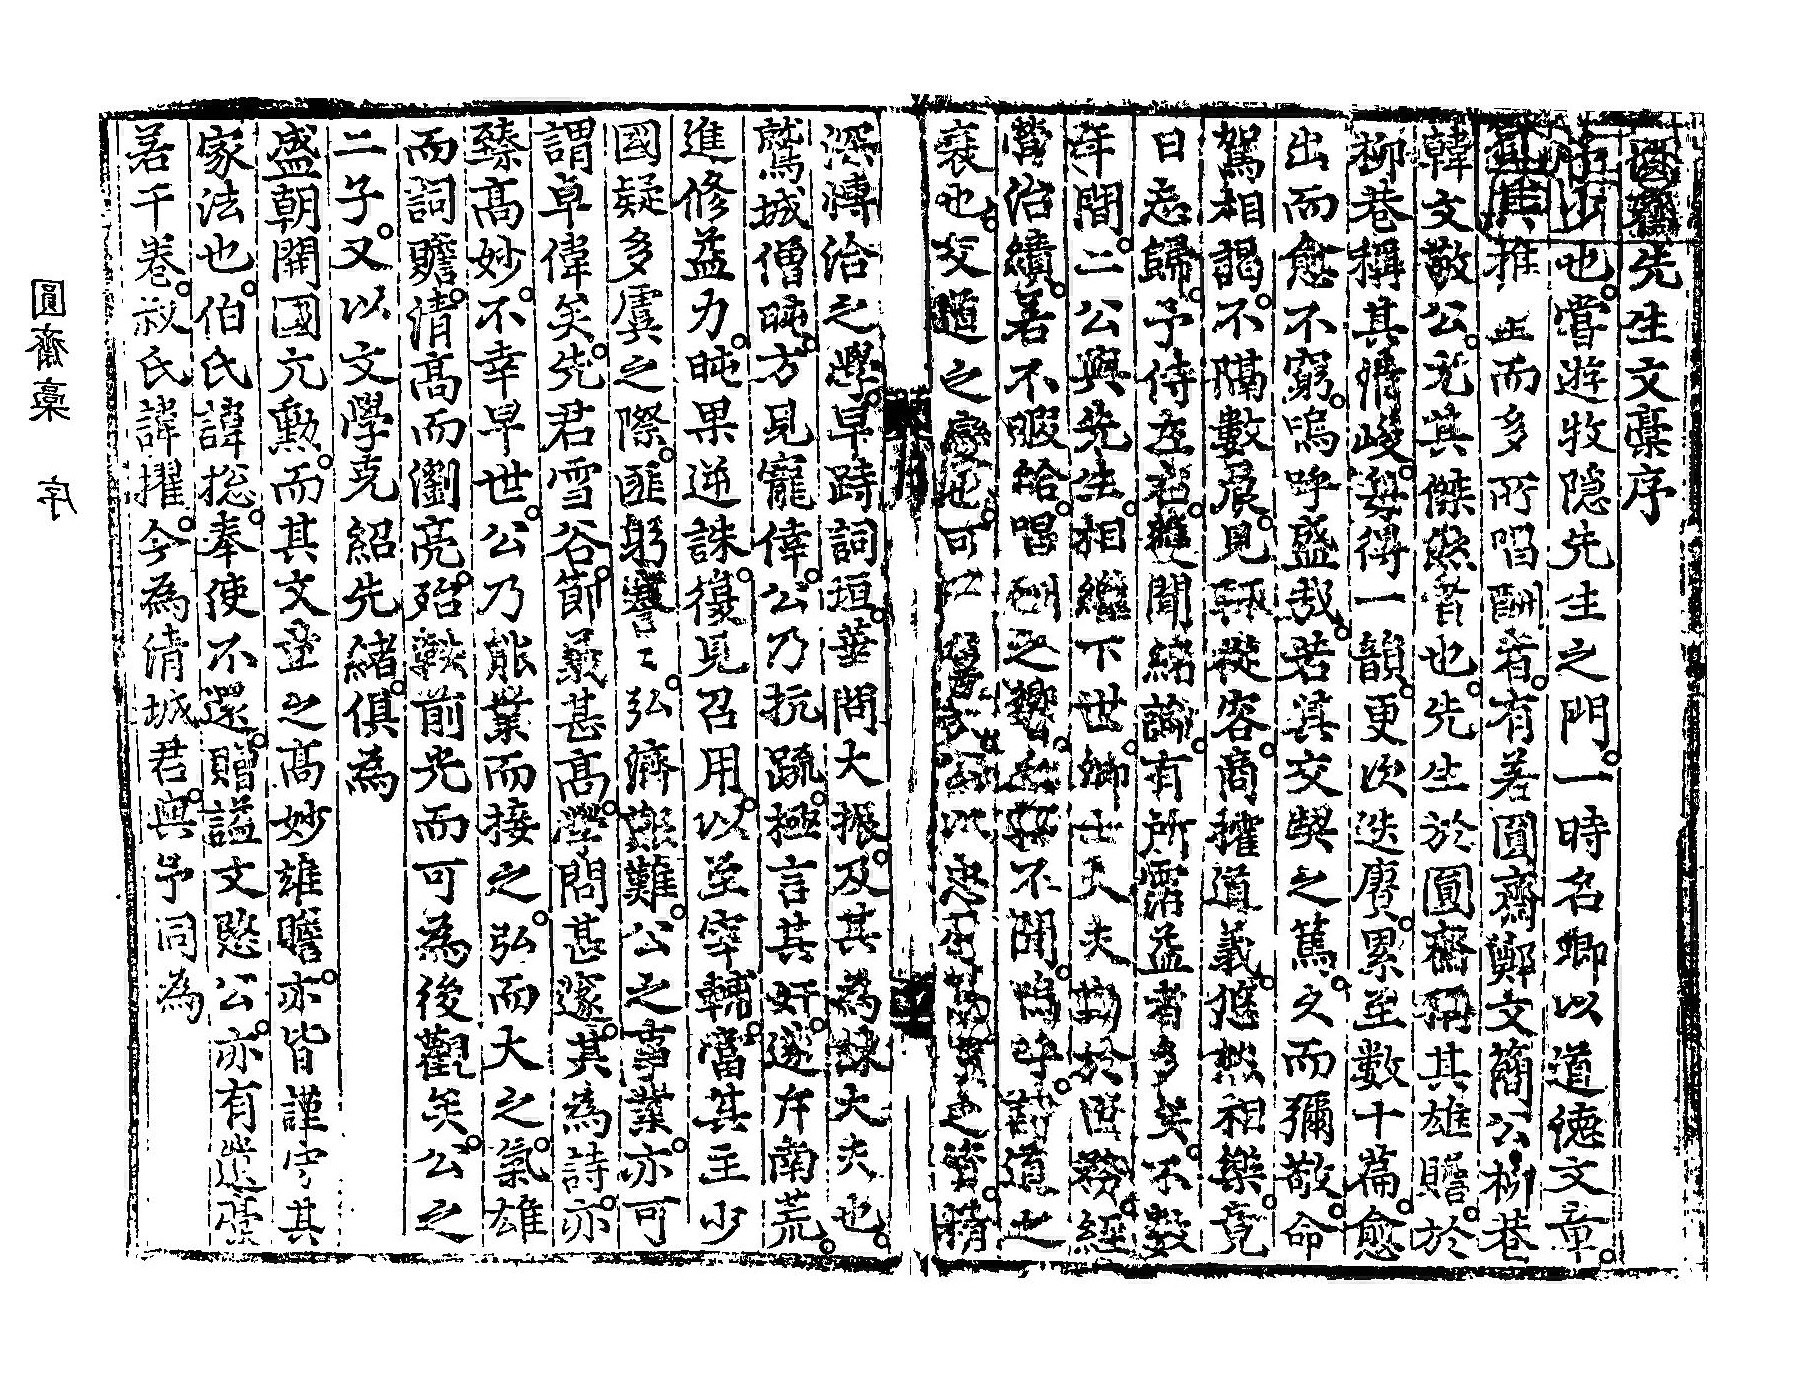 圓齋先生文藁序
也嘗遊牧隐先生之門一時名卿以道德文章
推 而多所唱酬者有若圓齋鄭文簡公柳巷
韓文敬公尤其傑然者也先生於圓齋稱其雄贍於
柳巷稱其情峻每得一韻更次迭賡累至數十篇愈
出而愈不窮嗚呼盛哉若其交契之篤久而彌敬命
駕相謁不隔數晨見輒從容商搉道義悠然相樂竟
日忘歸予侍左右獲聞緒論有所霑益者多矣不數
年間二公與先生相繼下世卿士大夫 於世務經
營治績若不暇給唱酬之 不聞嗚呼 道之
衰也交道之 也可以 以忠 之資精
深愽洽之學早跨詞垣華問大振及其為諫大夫也
鷲城僧旽方見寵倖公乃抗䟽極言其奸遂斥南荒
進修益力旽果逆誅復見召用以至宰輔當其主少
國疑多虞之際匪躬蹇〻弘濟艱難公之事業亦可
謂卓偉矣先君雪谷節義甚高學問甚邃其為詩亦
臻高妙不幸早世公乃能業而接之弘而大之氣雄
而詞贍清高而瀏亮殆軼前光而可為後觀矣公之
二子又以文學克紹先緖俱為
盛朝開國亢勳而其文章之高妙雄瞻亦皆謹守其
家法也伯氏諱摠奉使不還贈謚文愍公亦有遺藁
若干巻叔氏諱擢今為清城君與予同為
圓齋藁 序